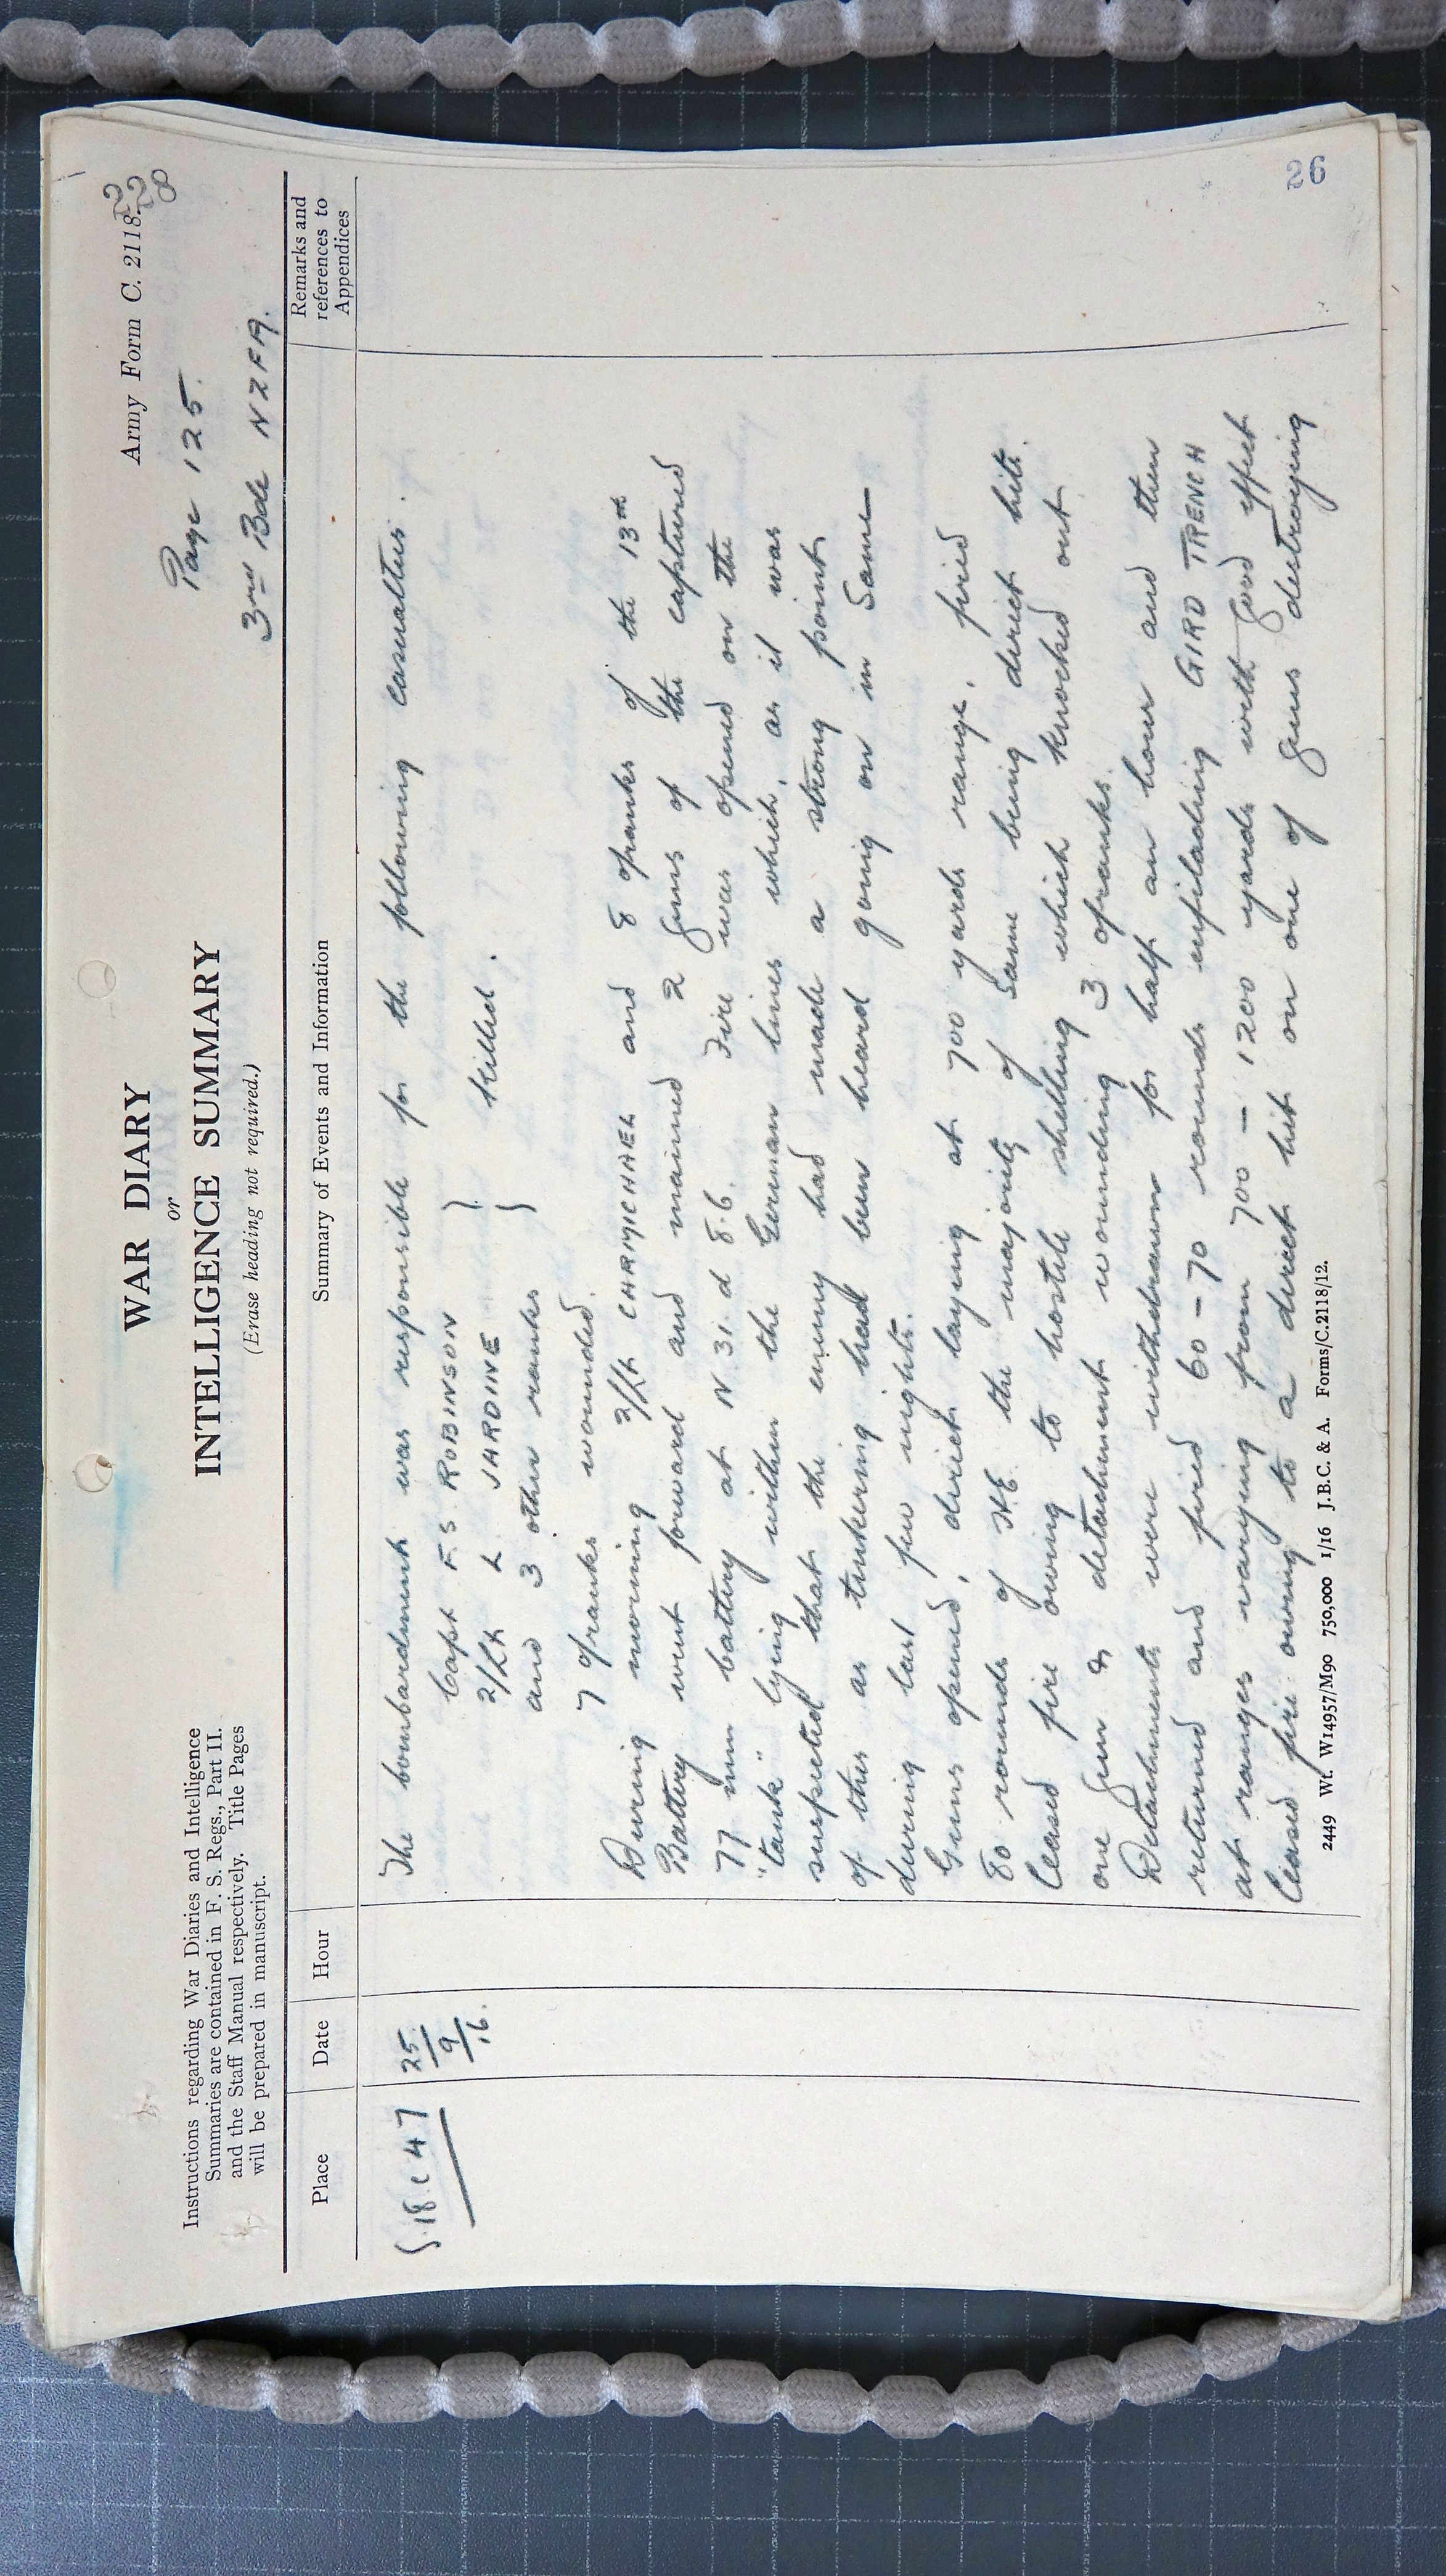 Army Form C. 2118.
228
WAR DIARY
or
INTELLIGENCE SUMMARY
(Erase heading not required.)
Page 125.
3rd Bde NZFA.
Instructions regarding War Diaries and Intelligence
Summaries are contained in F. S. Regs., Part II.
and the Staff Manual respectively. Title Pages
will be prepared in manuscript.
Place
Date
Hour
Summary of Events and Information
Remarks and
references to
Appendices
S.18.c 47
25
9
16.
The bombardment was responsible for the following casualties.
Capt F.S ROBINSON
2/Lt L JARDINE } killed.
and 3 other ranks
7 ofranks wounded.
During morning 2/Lt CARMICHAEL and 8 ofranks of the 13th
Battery went forward and mained 2 guns of the captured
77 mm battery at N 31. d 8.6. Fire was opened on the
"tank" lying within the German lines which, as it was
suspected that the enemy had made a strong point
of this as tinkering had been heard going on in same
during last few nights.
Guns opened, direct laying at 700 yards range, fired
80 rounds of H.E the majority of same being direct hits.
Ceased fire owing to hostile shelling which knocked out
one gun & detachment wounding 3 ofranks.
Detachments were withdrawn for half an hour and then
returned and fired 60 - 70 rounds enfilading GIRD TRENCH
at ranges varying from 700 - 1200 yards with good effect
Ceased fire owing to a direct hit on one of guns destroying
2449 Wt. W14957/M90 750,000 1/16 J.B.C. & A. Forms/C.2118/12.
26